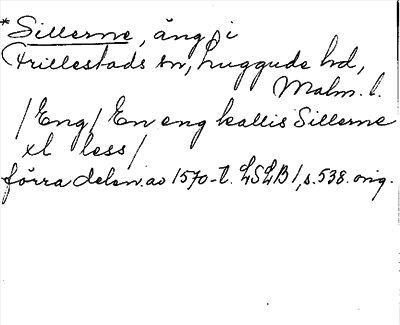 *Sillerne, äng i
Frillestads sn, Luggude hd,
Malm. l.
/Eng/ En eng kallis Sillerne
xl less/
förra delen av 1570-t. LSLB 1, s. 538. orig.